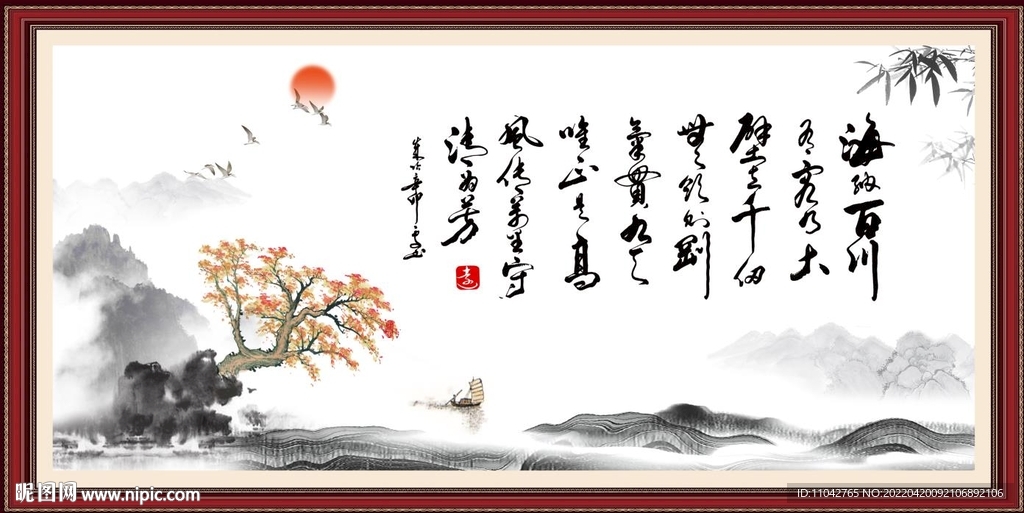 海納百川
有容乃大
壁立千仞
無欲則剛
氣貫九天
唯正是高
風传萬里守
清為芳
昵图网 www.nipic.com
ID:11042765 NO:20220420092106892106